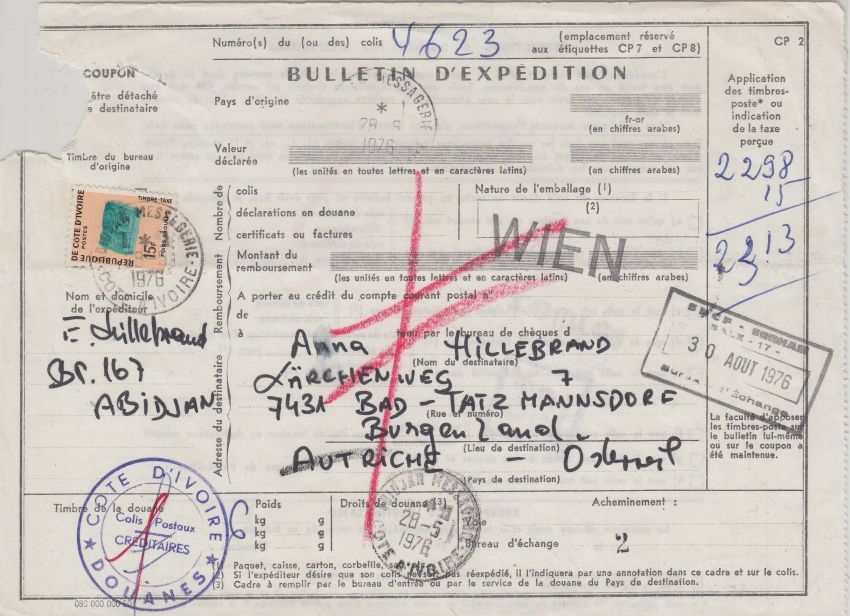 Numéro(s) du (ou des) colis 4623 (emplacement réservé aux étiquettes CP7 et CP8)
CP 2
COUPON
être détaché
destinataire
BULLETIN D'EXPÉDITION
Application des timbres-poste* ou indication de la taxe perçue
Pays d'origine
fr-or
(en chiffres arabes)
MESSAGERIE
28-5
1976
Timbre du bureau d'origine
Valeur déclarée
(les unités en toutes lettres et en caractères latins)
(en chiffres arabes)
2298
15
2313
Nombre de
colis
déclarations en douane
certificats ou factures
Nature de l'emballage (1)
(2)
TIMBRE-TAXE
REPUBLIQUE DE COTE D'IVOIRE
POSTES
15F
POIDS A BOULES
MESSAGERIE
1976
COTE D'IVOIRE
WIEN
Remboursement
Montant du remboursement
(les unités en toutes lettres et en caractères latins)
(en chiffres arabes)
A porter au crédit du compte courant postal n°
de
à
tenu par le bureau de chèques d
Nom et domicile de l'expéditeur
Hillebrand
BP. 167
ABIDJAN
Adresse du destinataire
Anna HILLEBRAND
(Nom du destinataire)
LÄRCHENWEG 7
7431 BAD-TATZMANNSDORF
(Rue et numéro)
Burgenland
(Lieu de destination)
AUTRICHE - Österreich
(Pays de destination)
30 AOUT 1976
l'Échange
La faculté d'apposer les timbres-poste sur le bulletin lui-même ou sur le coupon a été maintenue.
Timbre de la douane
COTE D'IVOIRE
Colis Postaux
CRÉDITAIRES
DOUANES
Poids
kg g
kg g
kg g
6
Droits de douane (3)
ABIDJAN MESSAGERIE
28-5
1976
COTE D'IVOIRE
Acheminement :
Bureau d'échange 2
(1) Paquet, caisse, carton, corbeille,
(2) Si l'expéditeur désire que son colis ne soit pas réexpédié, il l'indiquera par une annotation dans ce cadre et sur le colis.
(3) Cadre à remplir par le bureau d'entrée ou par le service de la douane du Pays de destination.
080 000 000